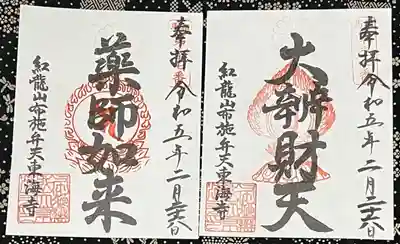 奉拝 令和五年二月二十六日
大辨財天
紅龍山布施弁天東海寺
奉拝 令和五年二月二十六日
薬師如来
紅龍山布施弁天東海寺